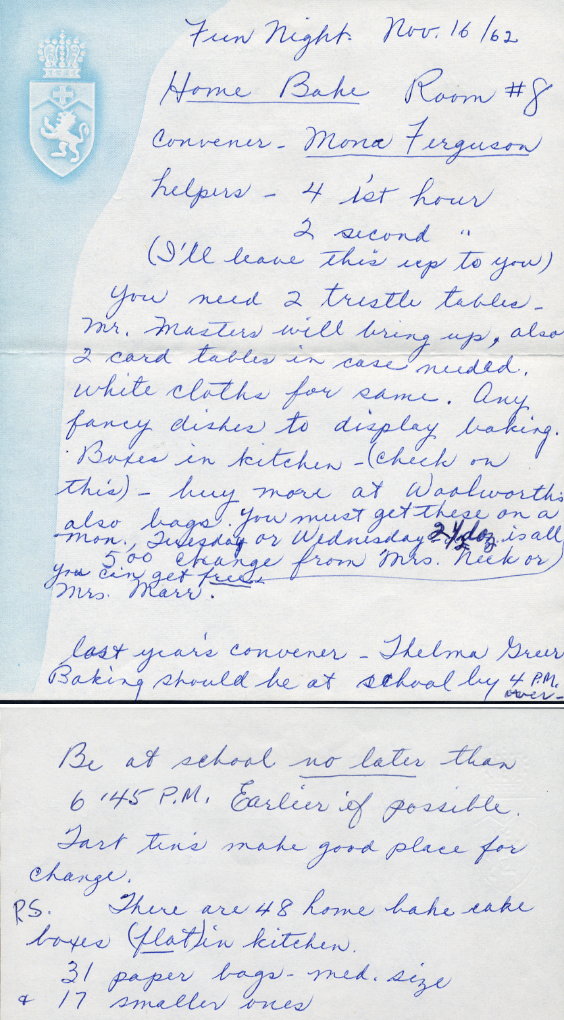 Fun Night. Nov. 16/62
Home Bake Room #8
convener - Mona Ferguson
helpers - 4 1st hour
2 second "
(I'll leave this up to you)
You need 2 trestle tables -
Mr. Masters will bring up, also
2 card tables in case needed.
white cloths for same. Any
fancy dishes to display baking.
Boxes in kitchen - (check on
this) - buy more at Woolworths
also bags. You must get these on a
Mon., Tuesday or Wednesday 2 1/2 doz is all
you can get free.
5.00 change from Mrs. Neck or
Mrs. Marr.
last year's convener - Thelma Greer
Baking should be at school by 4 P.M.
over -
Be at school no later than
6:45 P.M. Earlier if possible.
Tart tins make good place for
change.
P.S. There are 48 home bake cake
boxes (flat) in kitchen.
31 paper bags - med. size
& 17 smaller ones